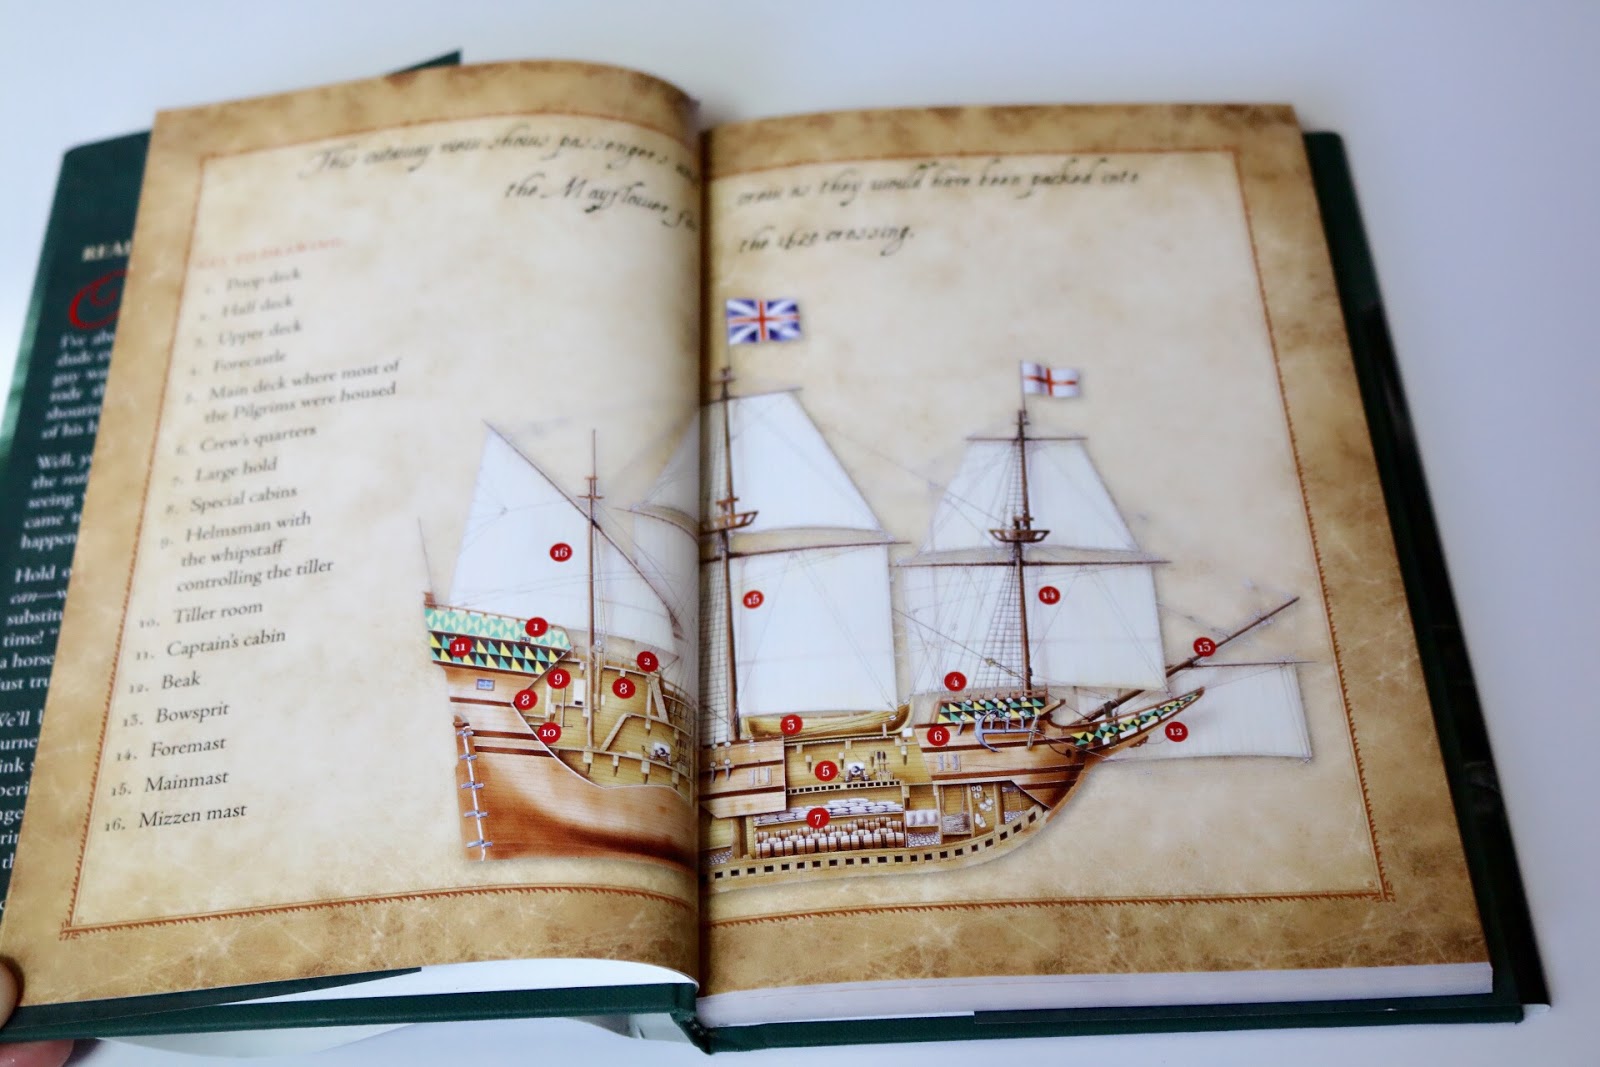 This cutaway view shows passengers and
crew as they would have been packed into
the Mayflower for
the 1620 crossing.
KEY TO DRAWING:
1. Poop deck
2. Half deck
3. Upper deck
4. Forecastle
5. Main deck where most of
the Pilgrims were housed
6. Crew's quarters
7. Large hold
8. Special cabins
9. Helmsman with
the whipstaff
controlling the tiller
10. Tiller room
11. Captain's cabin
12. Beak
13. Bowsprit
14. Foremast
15. Mainmast
16. Mizzen mast
16
1
11
2
9
8
8
10
15
14
13
4
3
6
12
5
7
REA
I've
dude
guy
of his
Well,
the
seeing
came
happen
Hold
can—
time!
a horse